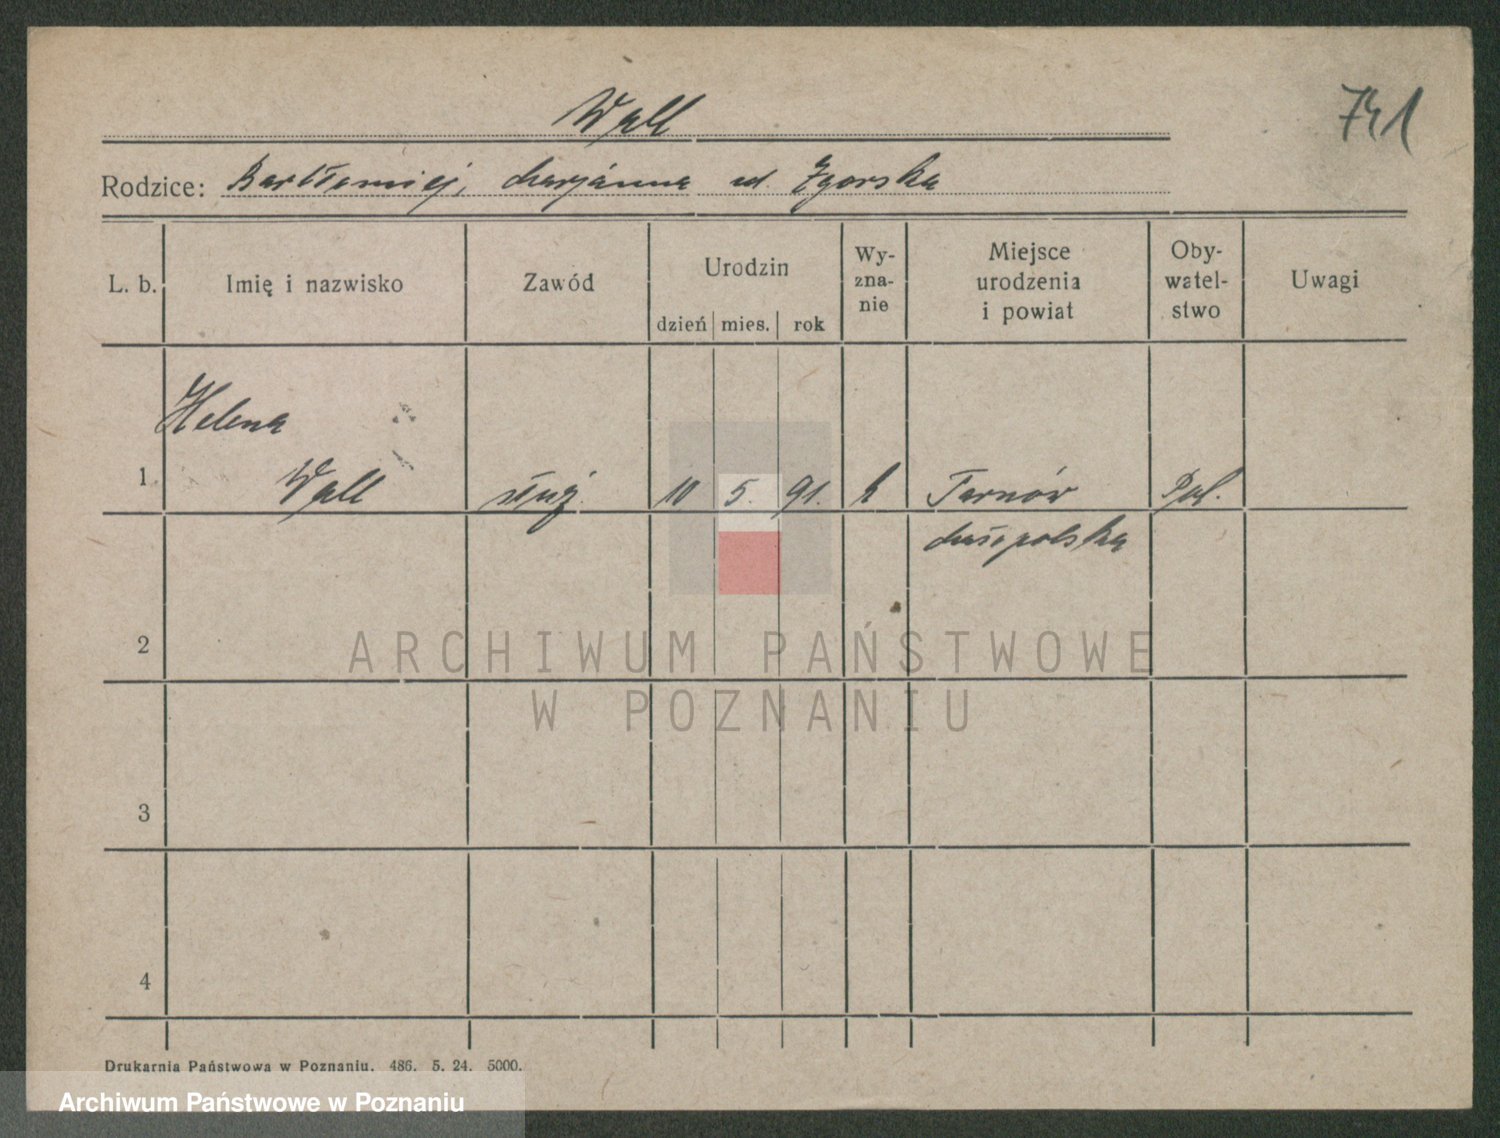 741
Wall
Rodzice: Bartłomiej, Marjanna ud. Zgorska
L. b. Imię i nazwisko Zawód Urodzin dzień mies. rok Wy-zna-nie Miejsce urodzenia i powiat Oby-watel-stwo Uwagi
Helena
1 Wall służ. 10 5. 91. k Tarnów Pol.
Małopolska
2
ARCHIWUM PAŃSTWOWE
W POZNANIU
3
4
Drukarnia Państwowa w Poznaniu. 486. 5. 24. 5000.
Archiwum Państwowe w Poznaniu